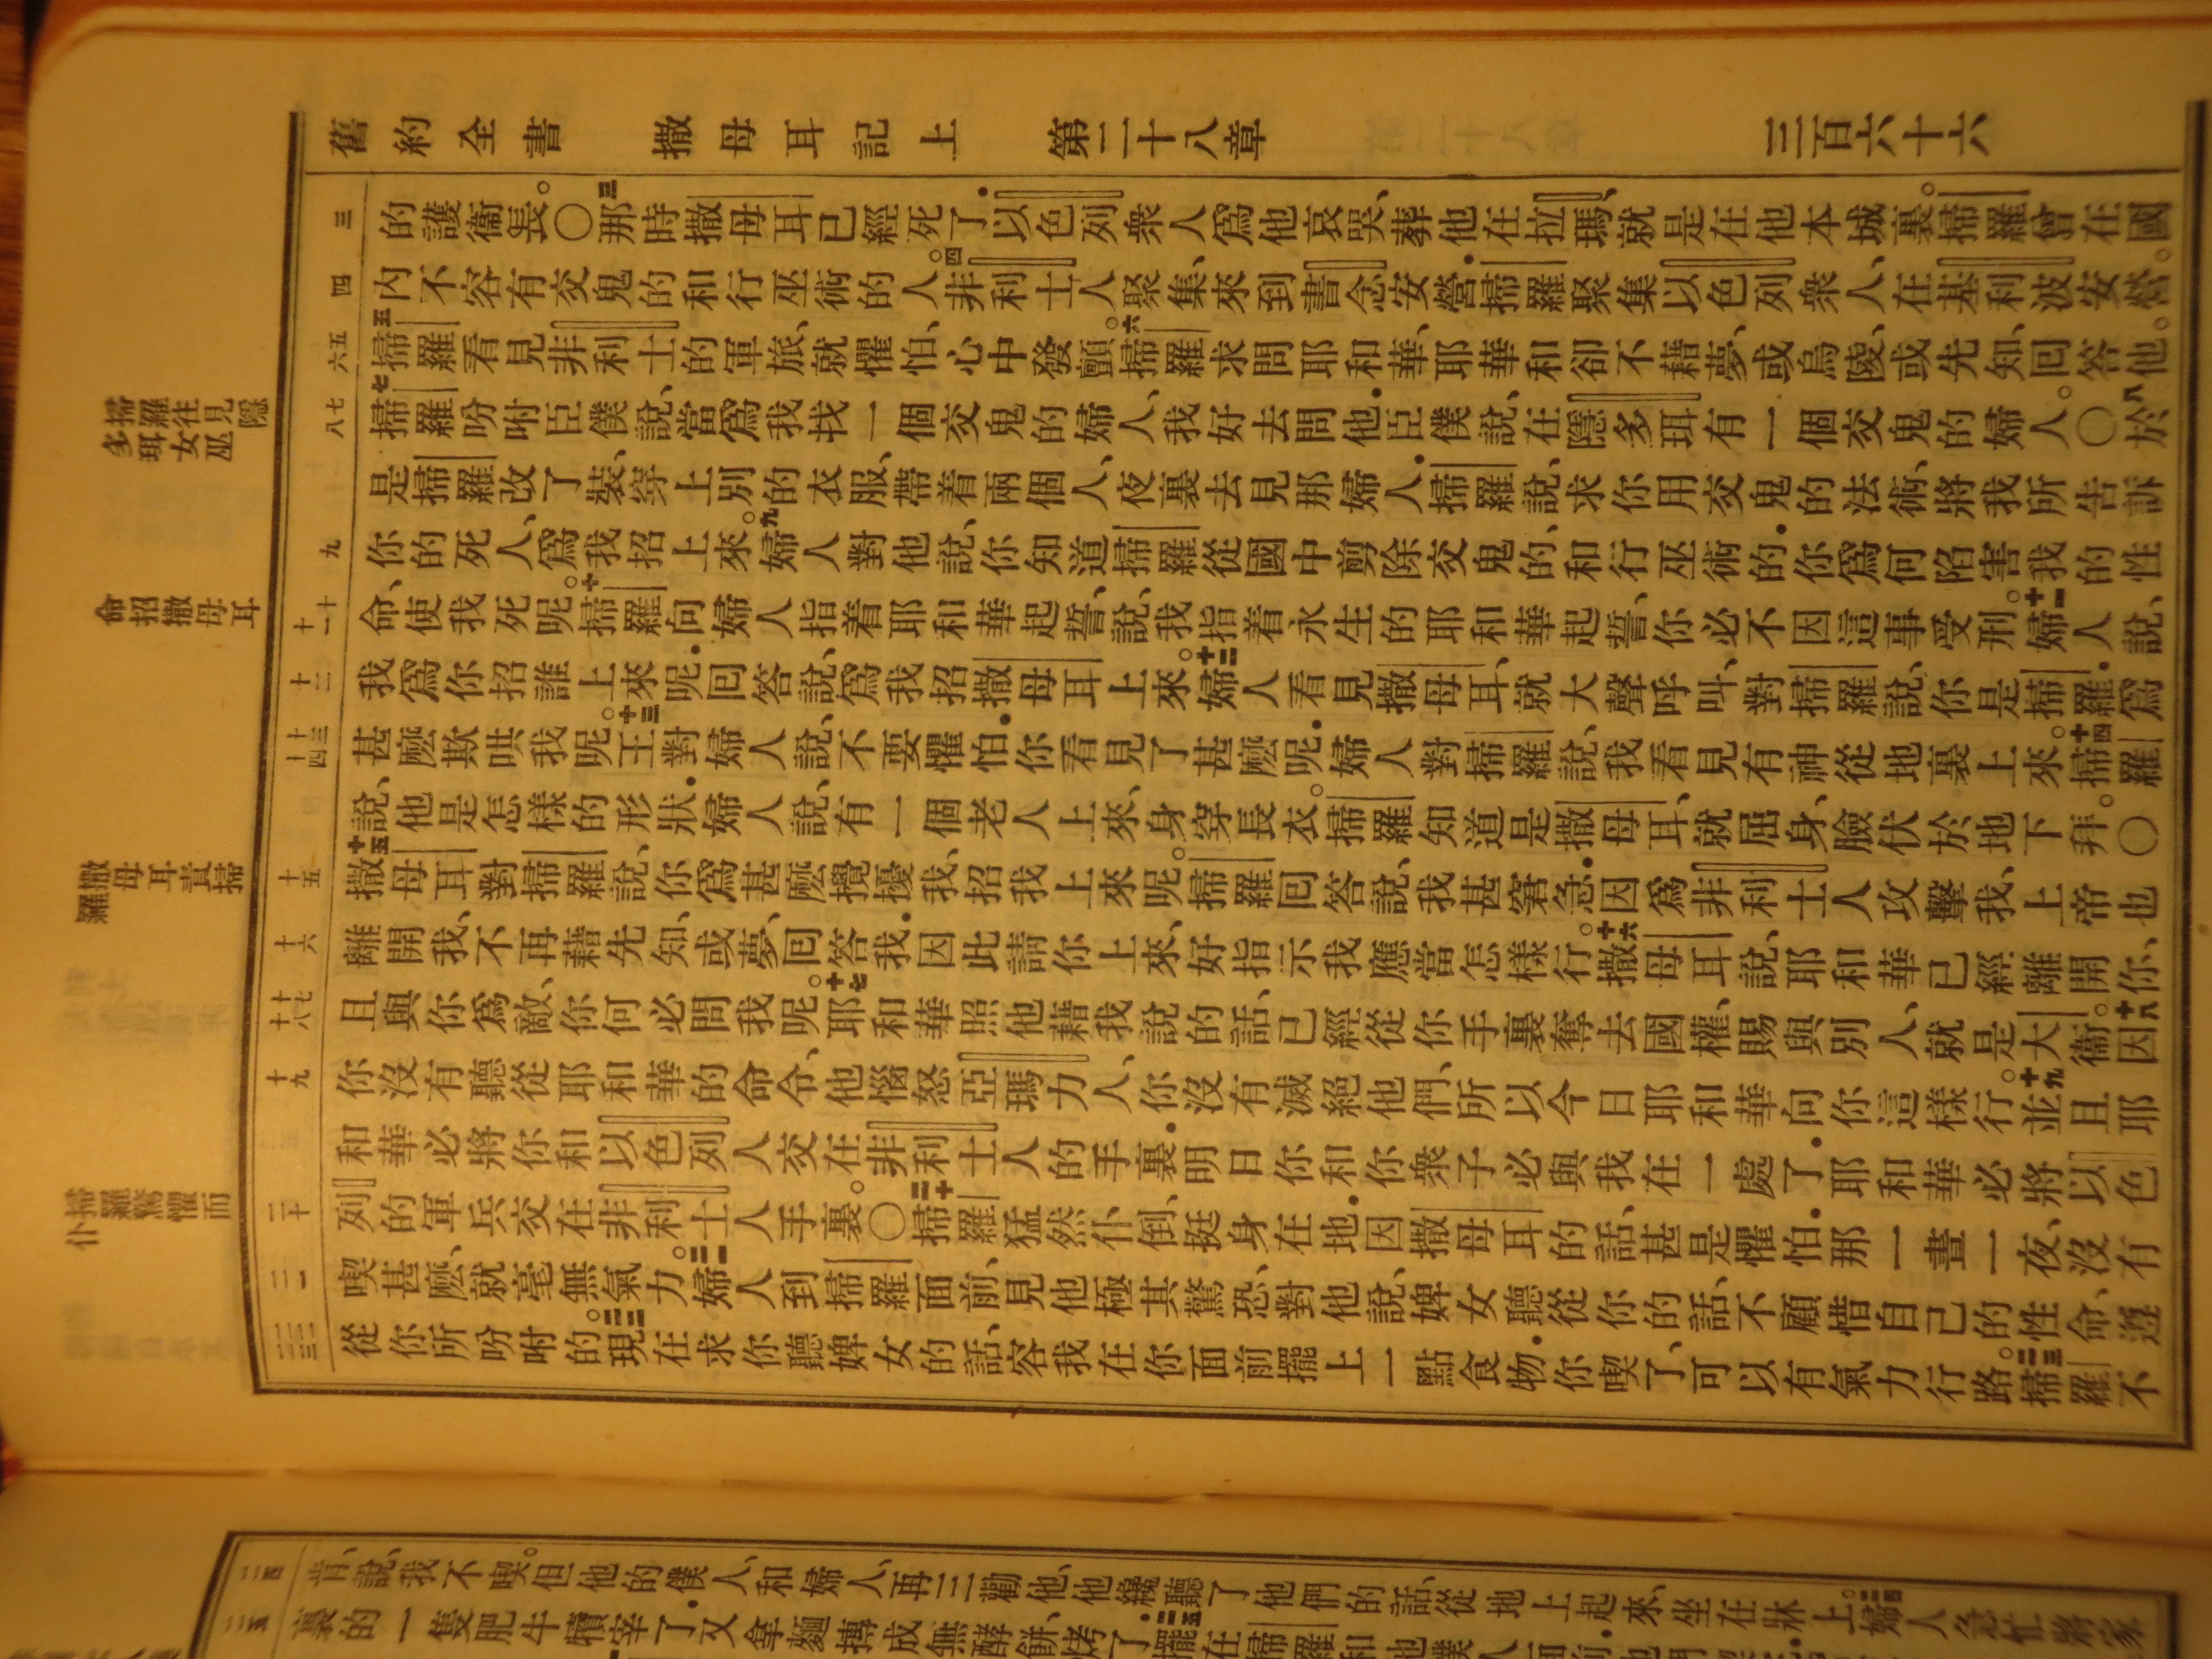 舊約全書 撒母耳記上 第二十八章 三百六十六
三
的護衞長。〇三那時撒母耳已經死了.以色列衆人爲他哀哭、葬他在拉瑪、就是在他本城裏。掃羅曾在國
四
內不容有交鬼的和行巫術的人。四非利士人聚集、來到書念安營.掃羅聚集以色列衆人、在基利波安營。
五 六
五掃羅看見非利士的軍旅、就懼怕、心中發顫。六掃羅求問耶和華、耶華和卻不藉夢、或烏陵、或先知、回答他。
七 八
七掃羅吩咐臣僕說、當爲我找一個交鬼的婦人、我好去問他.臣僕說、在隱多珥有一個交鬼的婦人。〇八於
是掃羅改了裝、穿上別的衣服、帶着兩個人、夜裏去見那婦人.掃羅說、求你用交鬼的法術、將我所告訴
九
你的死人、爲我招上來。九婦人對他說、你知道掃羅從國中剪除交鬼的、和行巫術的.你爲何陷害我的性
十 十一
命、使我死呢。十掃羅向婦人指着耶和華起誓、說、我指着永生的耶和華起誓、你必不因這事受刑。十一婦人說、
十二
我爲你招誰上來呢.回答說、爲我招撒母耳上來。十二婦人看見撒母耳、就大聲呼叫、對掃羅說、你是掃羅.爲
十三 十四
甚麽欺哄我呢。十三王對婦人說、不要懼怕.你看見了甚麽呢.婦人對掃羅說、我看見有神從地裏上來。十四掃羅
說、他是怎樣的形狀.婦人說、有一個老人上來、身穿長衣。掃羅知道是撒母耳、就屈身、臉伏於地下拜。〇
十五
十五撒母耳對掃羅說、你爲甚麽攪擾我、招我上來呢。掃羅回答說、我甚窘急.因爲非利士人攻擊我、上帝也
十六
離開我、不再藉先知、或夢、回答我.因此請你上來、好指示我應當怎樣行。十六撒母耳說、耶和華已經離開你、
十七 十八
且與你爲敵、你何必問我呢。十七耶和華照他藉我說的話、已經從你手裏奪去國權、賜與別人、就是大衞。十八因
十九
你沒有聽從耶和華的命令、他惱怒亞瑪力人、你沒有滅絕他們、所以今日耶和華向你這樣行。十九並且耶
和華必將你和以色列人交在非利士人的手裏.明日你和你衆子必與我在一處了.耶和華必將以色
二十
列的軍兵交在非利士人手裏。〇二十掃羅猛然仆倒、挺身在地.因撒母耳的話、甚是懼怕.那一晝一夜、沒有
二一
喫甚麽、就毫無氣力。二一婦人到掃羅面前、見他極其驚恐、對他說、婢女聽從你的話、不顧惜自己的性命、遵
二二 二三
從你所吩咐的。二二現在求你聽婢女的話、容我在你面前擺上一點食物.你喫了、可以有氣力行路。二三掃羅不
掃羅往見隱
多珥女巫
命招撒母耳
撒母耳責掃
羅
掃羅驚懼而
仆
二四
肯、說、我不喫。但他的僕人、和婦人、再三勸他、他纔聽了他們的話、從地上起來、坐在牀上。二四婦人急忙將家
二五
裏的一隻肥牛犢宰了.又拿麵摶成無酵餅、烤了.二五擺在掃羅和他僕人面前.